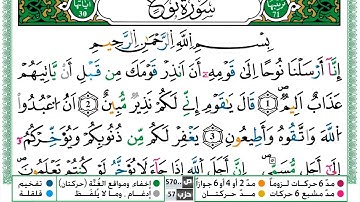 سُورَةُ نُوحٍ
ترتيبها 71
آياتها 28
بِسْمِ اللَّهِ الرَّحْمَٰنِ الرَّحِيمِ
إِنَّا أَرْسَلْنَا نُوحًا إِلَىٰ قَوْمِهِ أَنْ أَنذِرْ قَوْمَكَ مِن قَبْلِ أَن يَأْتِيَهُمْ
عَذَابٌ أَلِيمٌ ١ قَالَ يَٰقَوْمِ إِنِّي لَكُمْ نَذِيرٌ مُّبِينٌ ٢ أَنِ اعْبُدُوا
اللَّهَ وَاتَّقُوهُ وَأَطِيعُونِ ٣ يَغْفِرْ لَكُم مِّن ذُنُوبِكُمْ وَيُؤَخِّرْكُمْ
إِلَىٰ أَجَلٍ مُّسَمًّى إِنَّ أَجَلَ اللَّهِ إِذَا جَاءَ لَا يُؤَخَّرُ لَوْ كُنتُمْ تَعْلَمُونَ
مدّ 6 حركات لزوماً مدّ 2 أو 4 أو 6 جوازاً ص 570 إخفاء، ومواقع الغُنَّة (حركتان) تفخيم
مدّ مشبع 6 حركات مدّ حركتان حزب 57 إدغام، وما لا يُلفَظ قلقلة